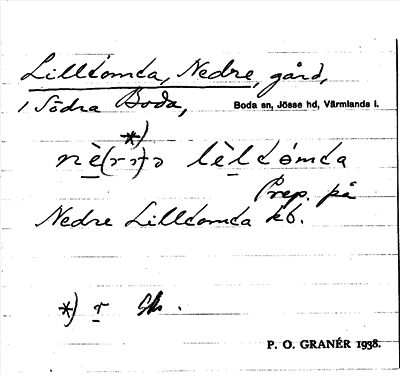 Lilltomta, Nedre, gård,
i Södra Boda, Boda sn, Jösse hd, Värmlands l.
*)
Prep. på
Nedre Lilltomta kb.
*) r
P. O. GRANÉR 1938.